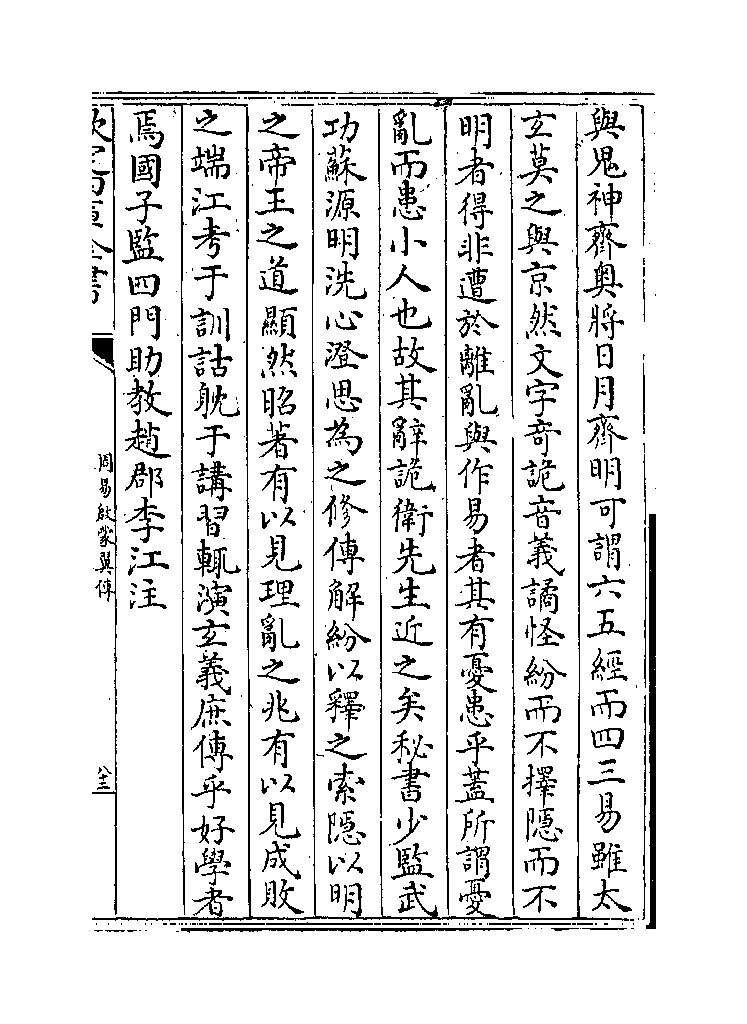 與鬼神齊奥將日月齊明可謂六五經而四三易雖太
玄莫之與京然文字竒詭音義譎怪紛而不擇隠而不
明者得非遭於離亂與作易者其有憂患乎蓋所謂憂
亂而患小人也故其辭詭衛先生近之矣秘書少監武
功蘇源明洗心澄思為之修傳解紛以釋之索隠以明
之帝王之道顯然昭著有以見理亂之兆有以見成敗
之端江考于訓詁躭于講習輒演玄義庶傳乎好學者
焉國子監四門助教趙郡李江注
欽定四庫全書
周易啟蒙翼傳
八十三